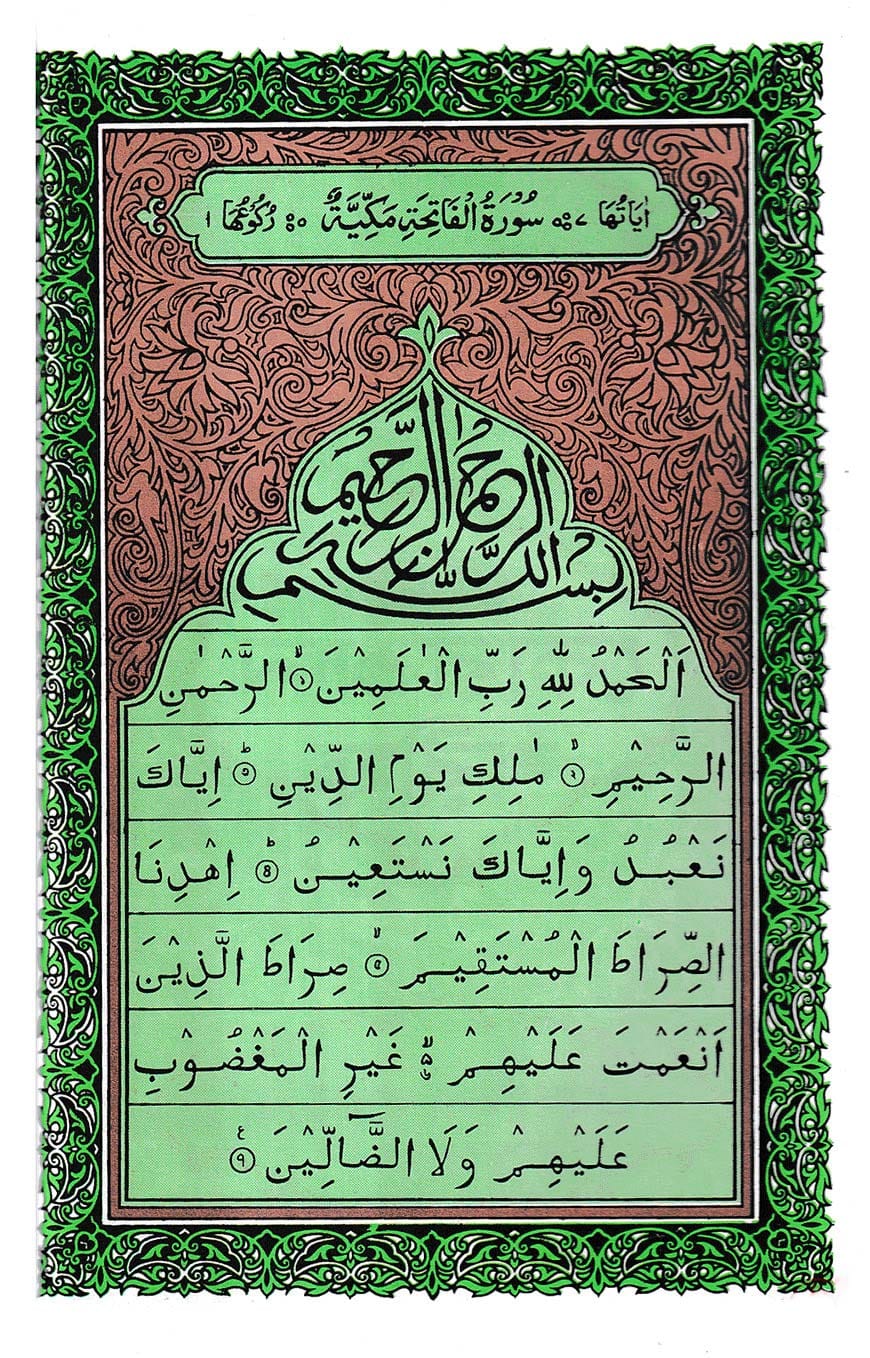 اٰيَاتُهَا ٧ سُوْرَةُ الْفَاتِحَةِ مَكِّيَّةٌ ٥ رُكُوْعُهَا ١
بِسْمِ اللّٰهِ الرَّحْمٰنِ الرَّحِيْمِ
اَلْحَمْدُ لِلّٰهِ رَبِّ الْعٰلَمِيْنَ ۙ‏ ١ الرَّحْمٰنِ
الرَّحِيْمِ ۙ‏ ٢ مٰلِكِ يَوْمِ الدِّيْنِ ؕ‏ ٣ اِيَّاكَ
نَعْبُدُ وَاِيَّاكَ نَسْتَعِيْنُ ؕ‏ ٤ اِهْدِنَا
الصِّرَاطَ الْمُسْتَقِيْمَ ۙ‏ ٥ صِرَاطَ الَّذِيْنَ
اَنْعَمْتَ عَلَيْهِمْ ۙ۬ ٥ غَيْرِ الْمَغْضُوْبِ
عَلَيْهِمْ وَلَا الضَّآلِّيْنَ ٩ ع